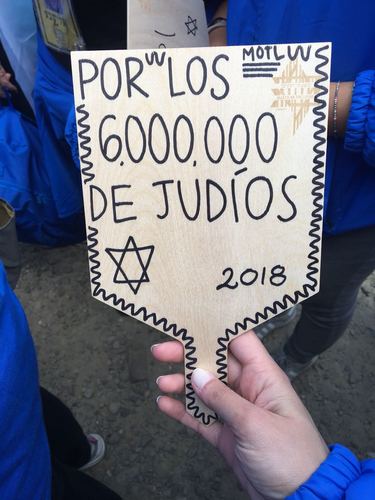 MOTL
POR LOS
6,000,000
DE JUDÍOS
2018